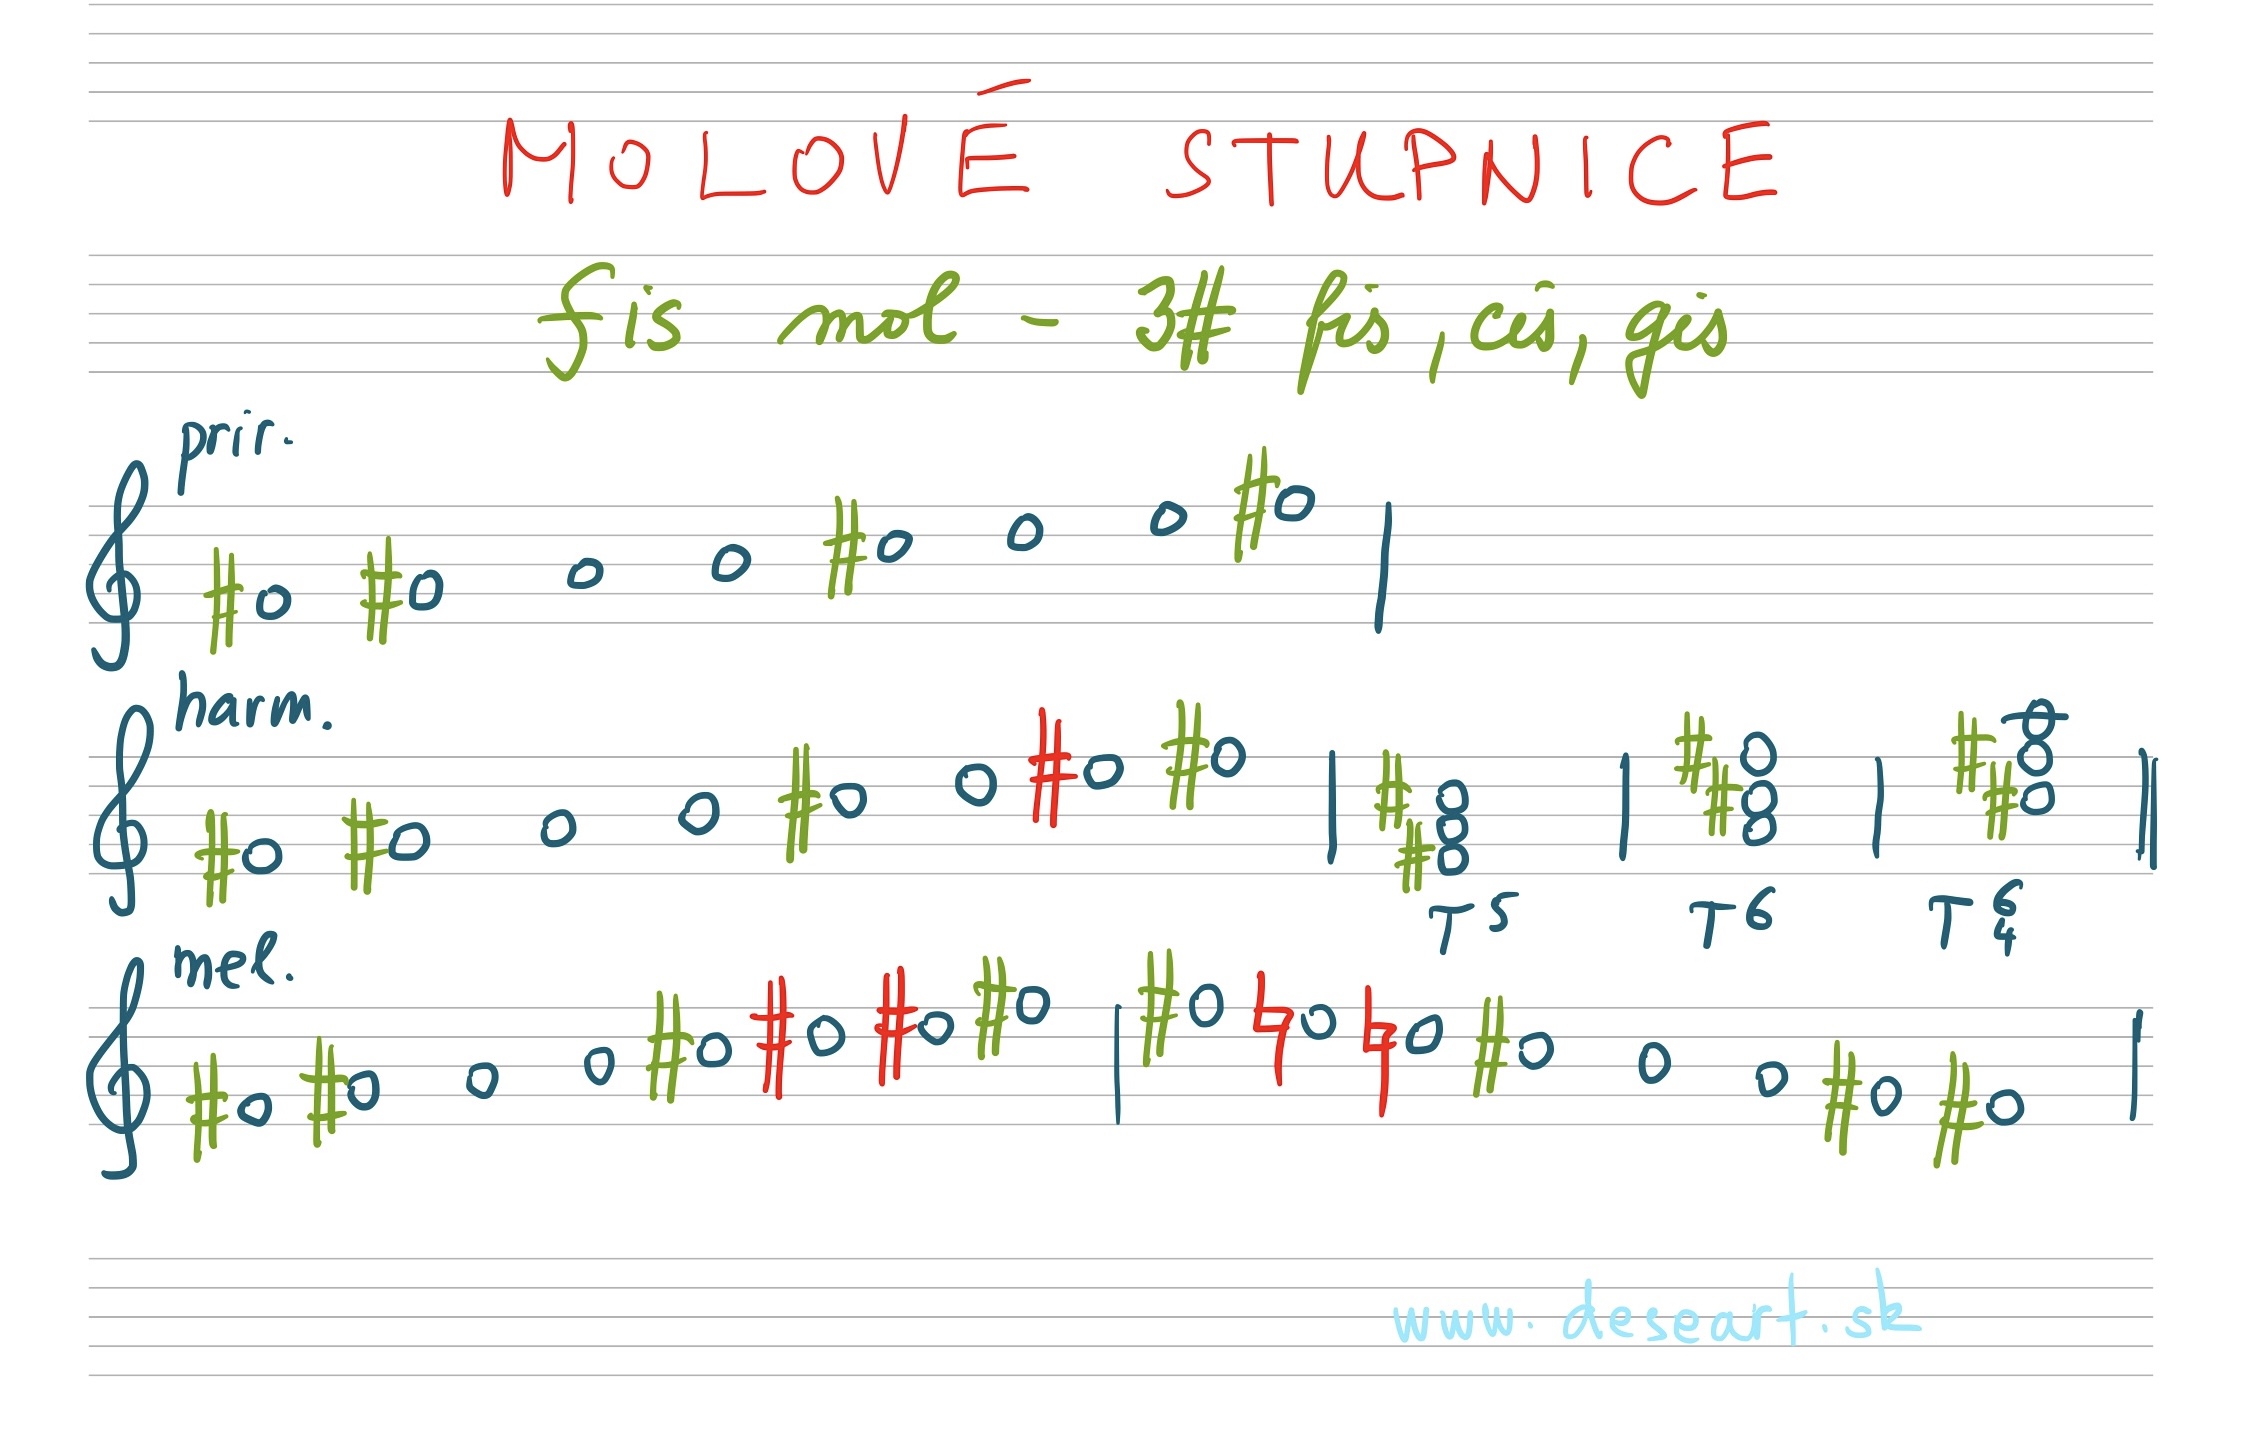 MOLOVÉ STUPNICE
fis mol - 3# fis, cis, gis
prir.
harm.
T5 T6 T6 4
mel.
www.deseart.sk